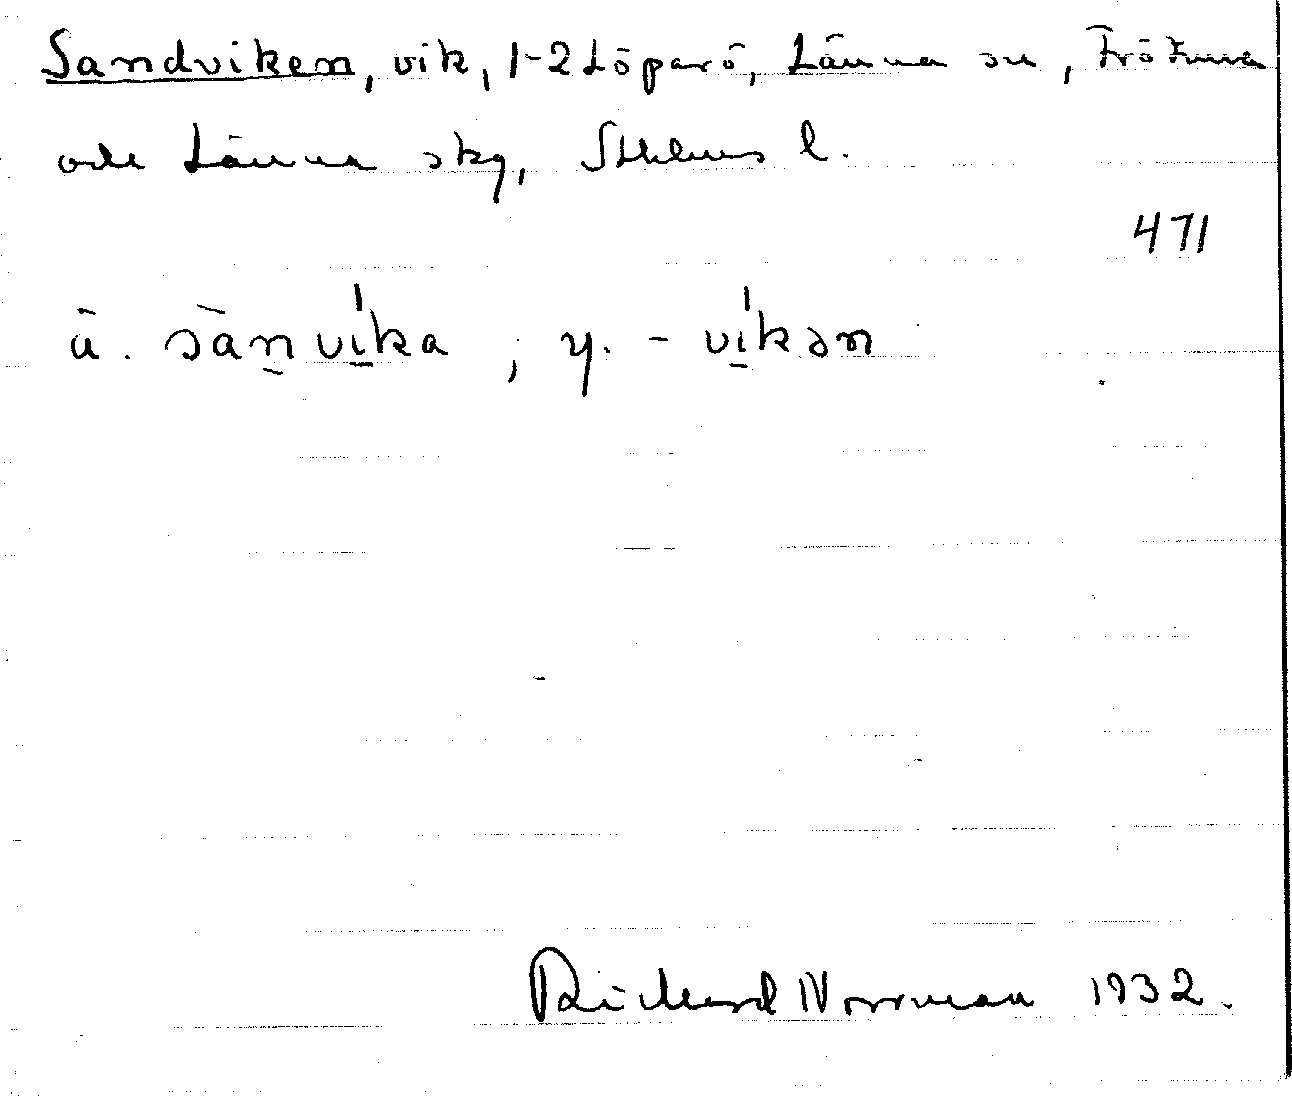 Sandviken, vik, 1-2 Löparö, Länna sn, Frötuna
och Länna skg, Sthlms l.
471
ä. sànvíka ; y. - víkən
Rickard Norrman 1932.